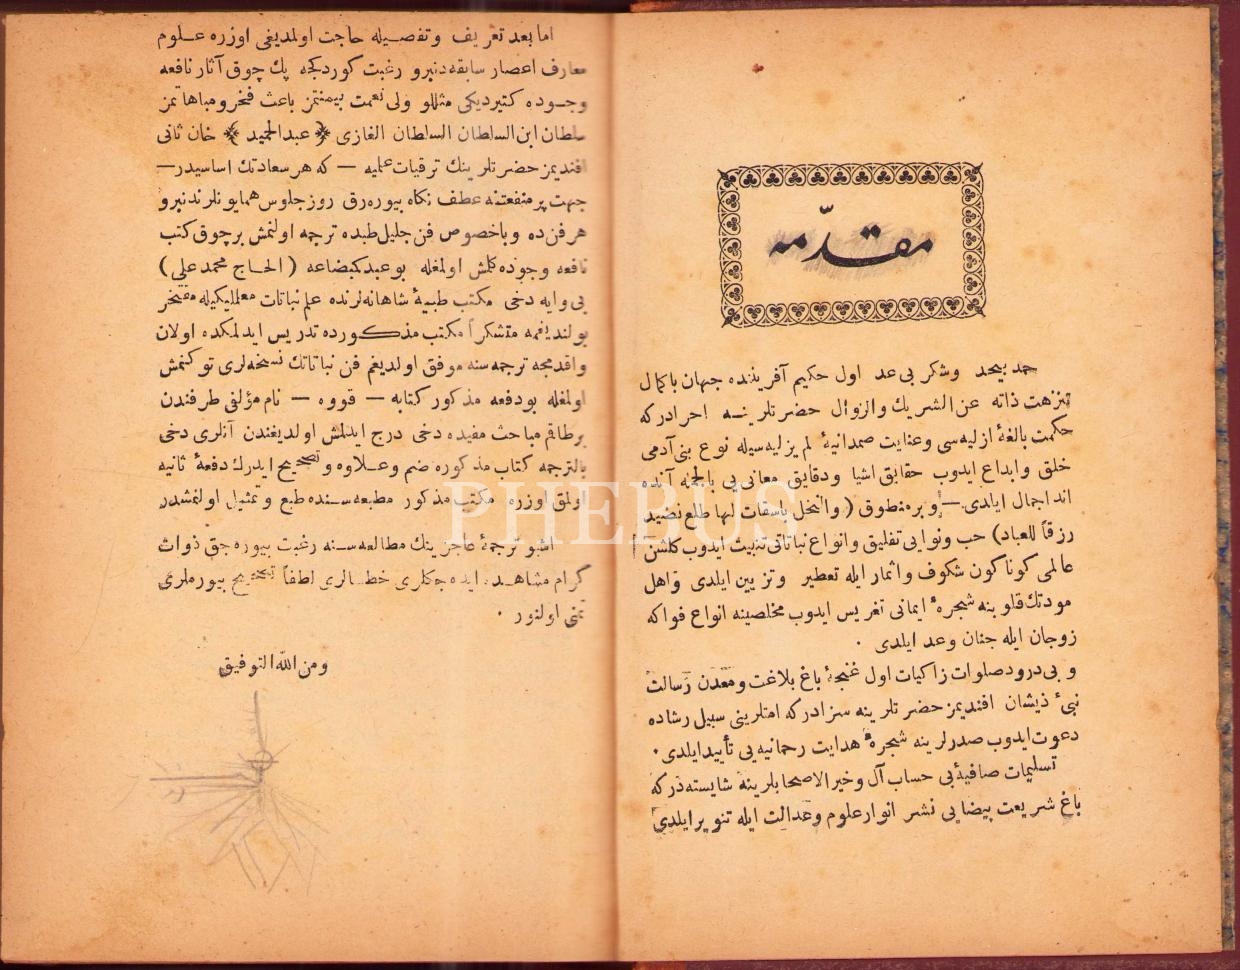 مقدّمه
حمد بیحد وشکر بی عد اول حکیم آفریننده جهان باکمال
تنزهت ذاته عن الشریك والزوال حضرتلرینه احرادرکه
حکمت بالغهٔ ازلیه سی وعنایت صمدانیهٔ لم یزلیه سیله نوع بنی آدمی
خلق وابداع ایدوب حقایق اشیا ودقایق معانی یی بالجمله آنده
اجمال ایلدی — وبر منطوق (والنخل باسقات لها طلع نضید
رزقاً للعباد) حب ونوایی تفلیق وانواع نباتاتی تنبیت ایدوب کلشن
عالمی کوناکون شکوف واثمار ایله تعطیر وتزیین ایلدی واهل
مودتك قلوبنه شجرهٔ ایمانی تغریس ایدوب مخلصینه انواع فواکه
زوجان ایله جنان وعد ایلدی .
و بی درود صلوات زاکیات اول غنجهٔ باغ بلاغت ومعدن رسالت
نبیٔ ذیشان افندیمز حضرتلرینه سزادرکه امتلرینی سبیل رشاده
دعوت ایدوب صدرلرینه شجرهٔ هدایت رحمانیه یی تأیید ایلدی .
تسلیمات صافیهٔ بی حساب آل وخیر الاصحابلرینه شایسته درکه
باغ شریعت بیضایی نشر انوار علوم وعدالت ایله تنویر ایلدی
اما بعد تعریف وتفصیله حاجت اولمدیغی اوزره علوم
معارف اعصار سابقه دنبرو رغبت کوردکجه پك چوق آثار نافعه
وجوده کتیردیکی مثللو ولی نعمت بیمنتمز باعث فخر ومباهاتمز
سلطان ابن السلطان السلطان الغازی ﴿ عبدالحمید ﴾ خان ثانی
افندیمز حضرتلرینك ترقیات علمیه — که هر سعادتك اساسیدر —
جهت پرمنفعتنه عطف نکاه بیوره رق روز جلوس همایونلرندنبرو
هر فن ده وباخصوص فن جلیل طبده ترجمه اولنمش برچوق کتب
نافعه وجوده کلمش اولمغله بو عبد کمبضاعه (الحاج محمد علی)
بی وایه دخی مکتب طبیهٔ شاهانه لرنده علم نباتات معلملیکیله مفتخر
بولندیغمه متشکراً مکتب مذکورده تدریس ایدلمکده اولان
واقدمجه ترجمه سنه موفق اولدیغم فن نباتاتك نسخه لری توکنمش
اولمغله بودفعه مذکور کتابه — قووه — نام مؤلفی طرفندن
برطاقم مباحث مفیده دخی درج ایدلمش اولدیغندن آنلری دخی
بالترجمه کتاب مذکوره ضم وعلاوه وتصحیح ایدرك دفعهٔ ثانیه
اولمق اوزره مکتب مذکور مطبعه سنده طبع وتمثیل اولنمشدر
اشبو ترجمهٔ عاجزینك مطالعه سنه رغبت بیوره جق ذوات
کرام مشاهده ایده جکلری خطالری لطفاً تصحیح بیورملری
تمنی اولنور .
ومن الله التوفیق
PHEBUS